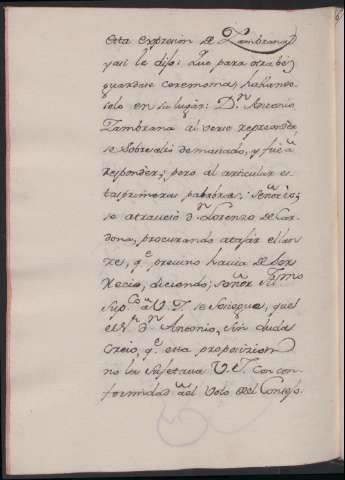 esta expresion de Zambrana,
y asi le dijo: Que para otra bez
guardase ceremonias, hallando-
selo en su lugar: D.n Antonio
Zambrana al verse reprender,
se sobresaltó demasiado, y fue a
responder; pero al articular es-
tas primeras palabras: Señor io;
se atravesó d.n Lorenzo de Car-
dona, procurando atajar el lan-
ze, q.e previno havia de ser
recio, diciendo: Señor Ill.mo
Sup.co a V. I. se sosiegue, que
el S.r d.n Antonio, sin duda
creio, q.e esta proposizion
no la sujetava V. I. con con-
formidad al voto del Consejo.